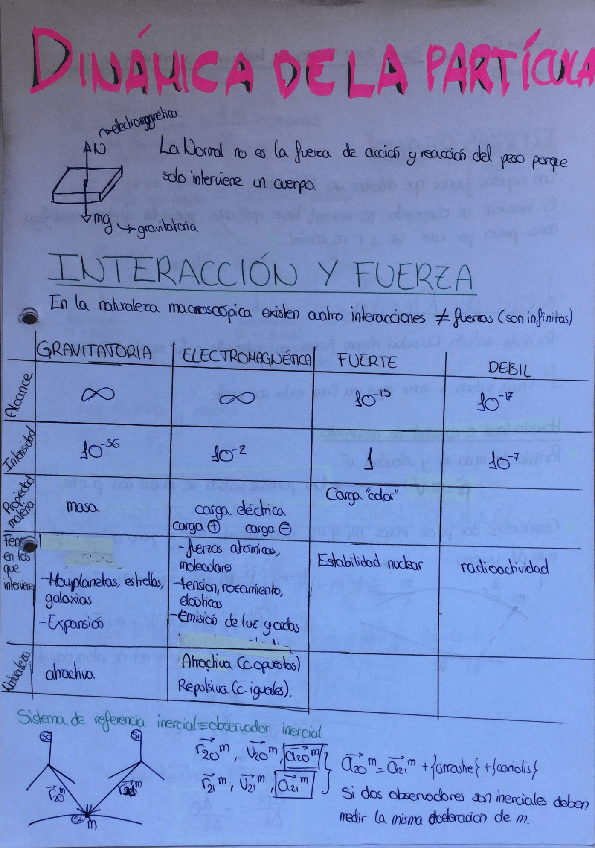 DINÁMICA DE LA PARTÍCULA
electromagnética
N
La Normal no es la fuerza de acción y reacción del peso porque
solo interviene un cuerpo.
mg → gravitatoria
INTERACCIÓN Y FUERZA
En la naturaleza macroscópica existen cuatro interacciones ≠ fuerzas (son infinitas)
GRAVITATORIA ELECTROMAGNÉTICA FUERTE DEBIL
Alcance ∞ ∞ 10^-15 10^-17
Intensidad 10^-36 10^-2 1 10^-7
Propiedad materia masa carga eléctrica Carga "color"
carga ⊕ carga ⊖
en los que interviene
-Mov planetas, estrellas,
galaxias
-Expansión
-fuerzas atómicas,
moleculares
-tension, rozamiento,
elásticas
-Emisión de luz y ondas
Estabilidad nuclear
radioactividad
Naturaleza atractiva Atractiva (c.opuestas)
Repulsiva (c.iguales).
Sistema de referencia inercial = observador inercial
r⃗20^m, v⃗20^m, a⃗20^m
r⃗21^m, v⃗21^m, a⃗21^m
a⃗20^m = a⃗21^m + {arrastre} + {coriolis}
Si dos observadores son inerciales deben
medir la misma aceleracion de m.
r⃗20^m
m